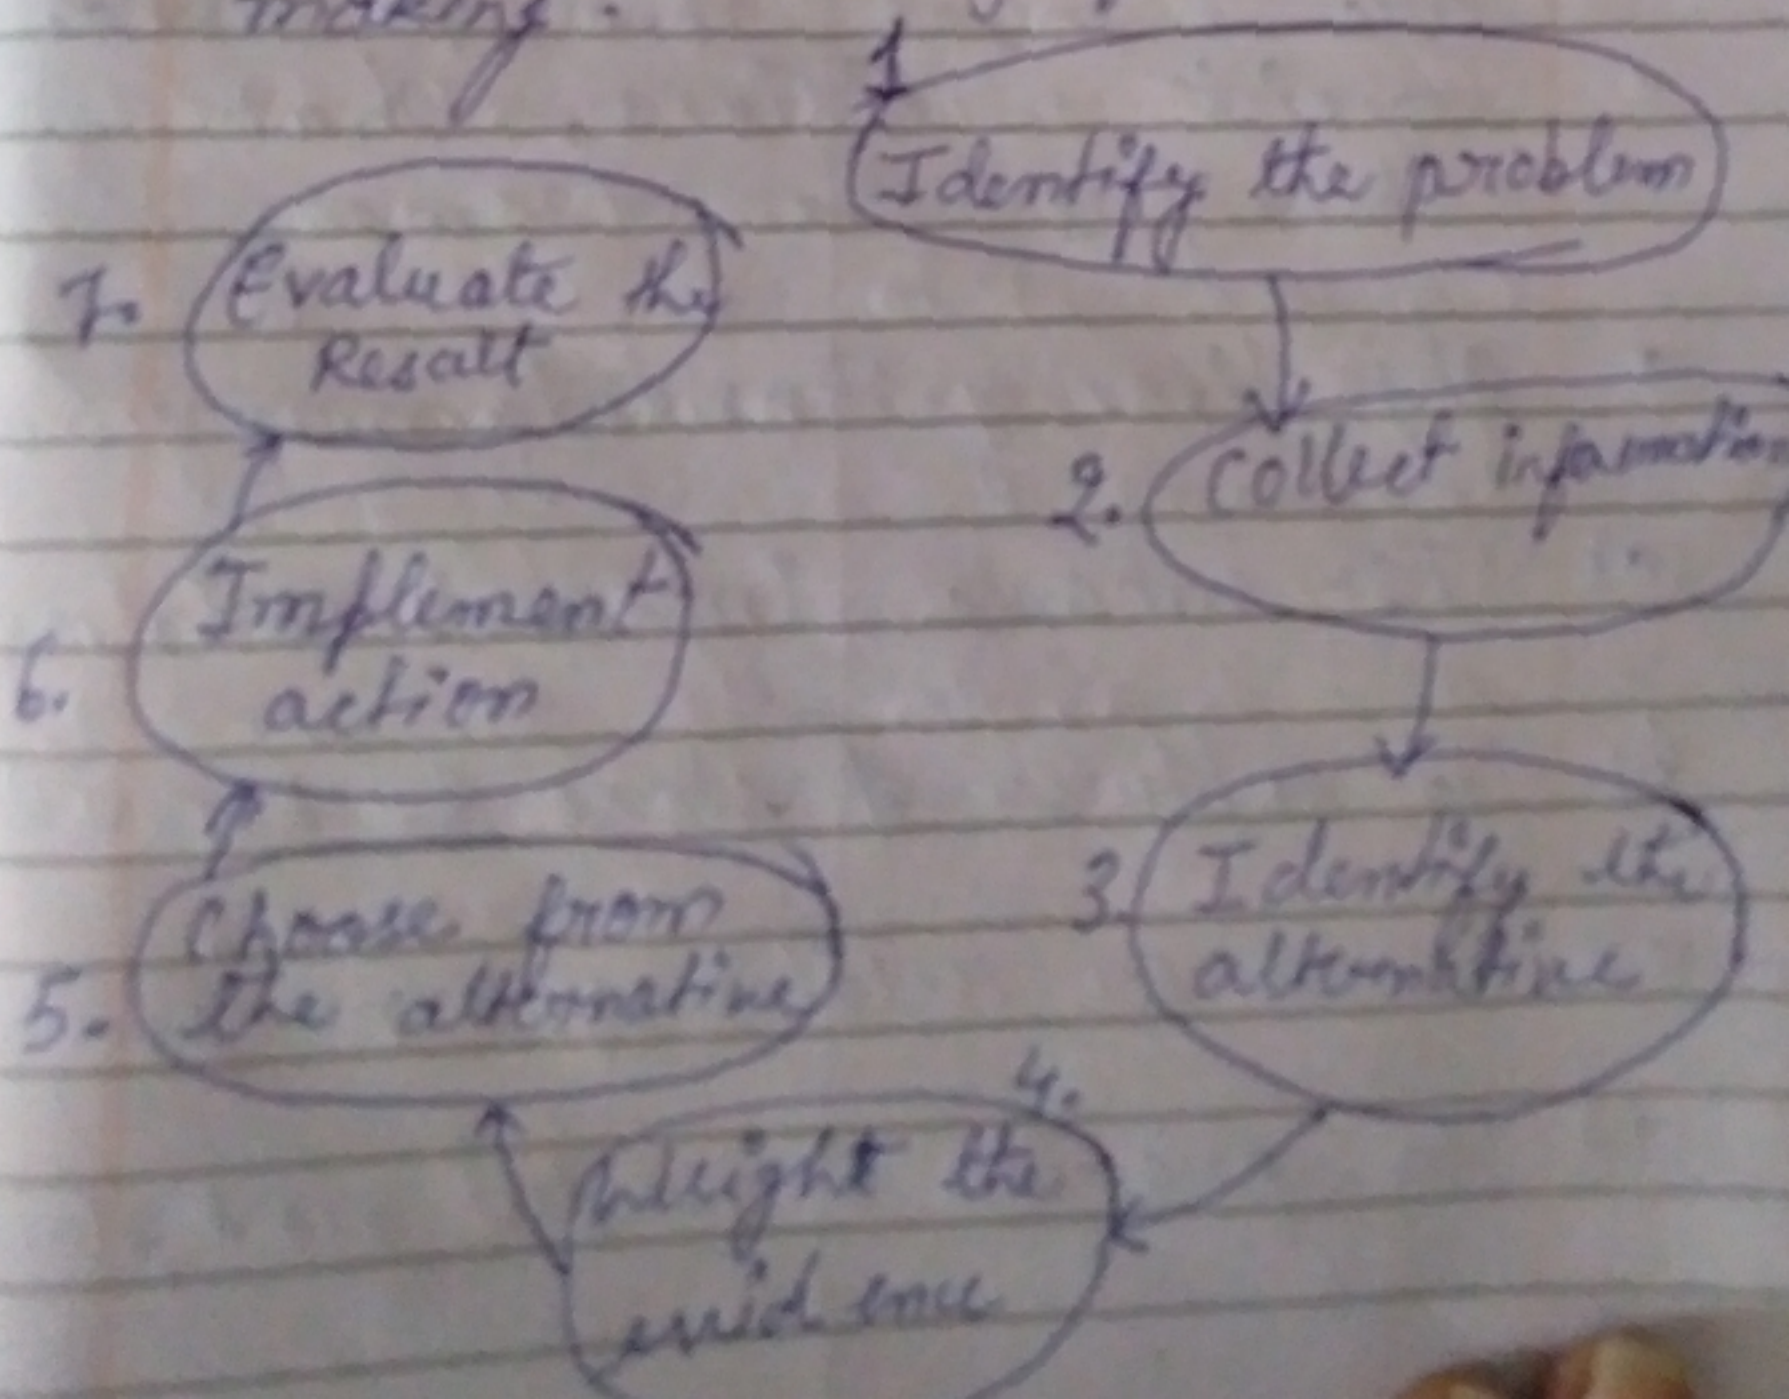 making.
1
Identify the problem
2. Collect information
3. Identify the
alternative
4.
Weight the
evidence
5. Choose from
the alternative
6. Implement
action
7. Evaluate the
Result